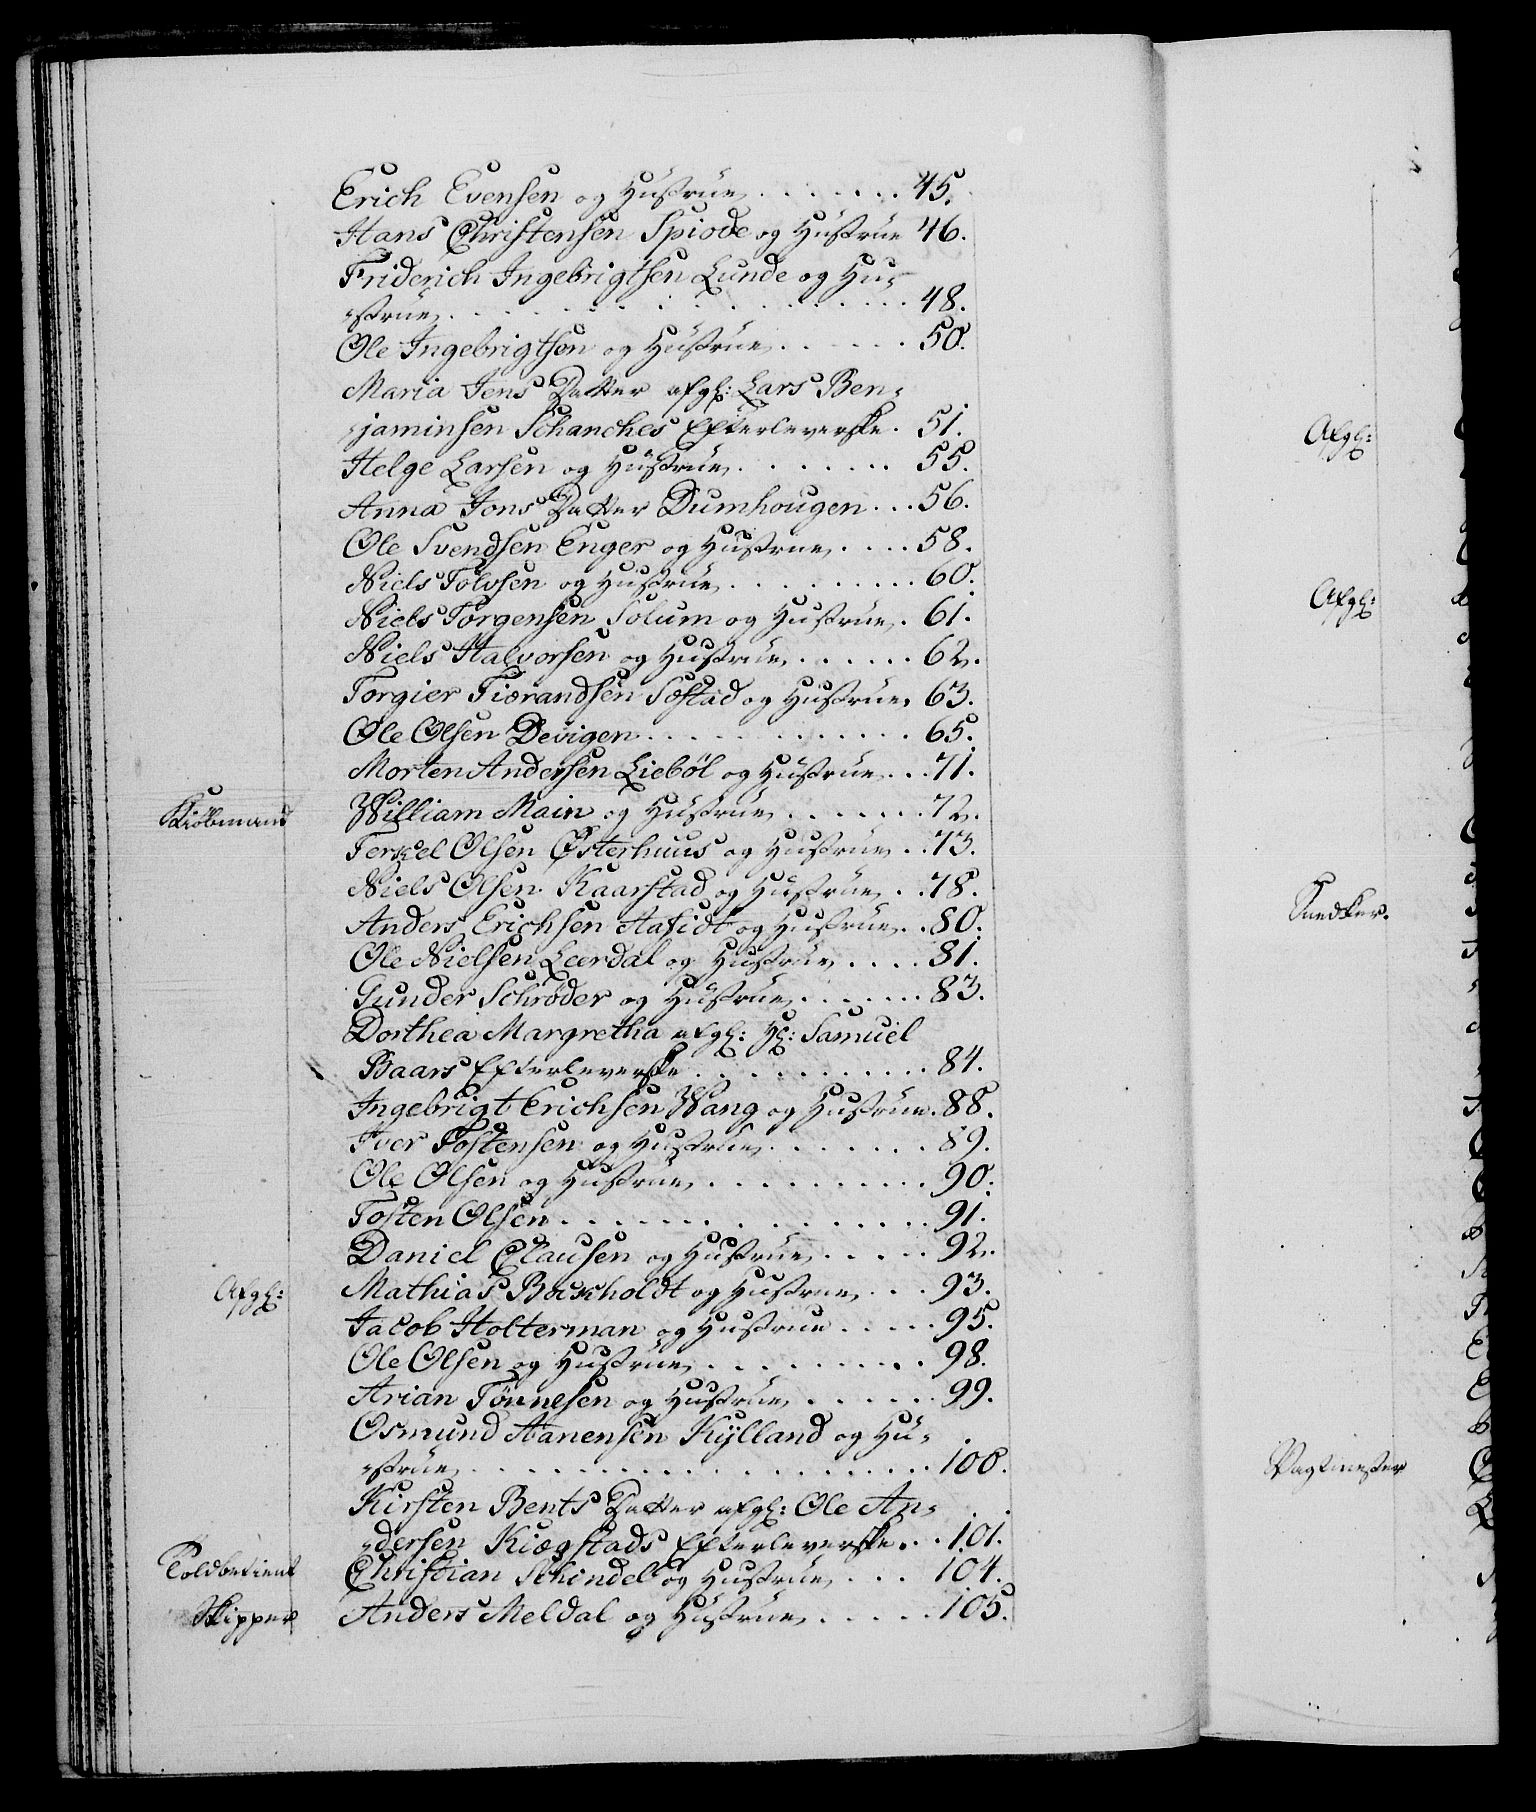 Erich Evensen og Hustrue . . . . . . . 45.
Hans Christensen Spiode og Hustrue 46.
Friderich Ingebrigtsen Lunde og Hu-
-strue . . . . . . . . . . . . . . 48.
Ole Ingebrigtsen og Hustrue . . . . . . 50.
Maria Jens Datter afgl: Lars Ben-
-jaminsen Schanches Efterleverske . 51.
Helge Larsen og Hustrue . . . . . . . 55.
Anna Jons Datter Dumhougen . . . 56.
Ole Svendsen Enger og Hustrue . . . . 58.
Niels Tolvsen og Hustrue . . . . . . . . 60.
Niels Torgensen Solum og Hustrue . 61.
Niels Halvorsen og Hustrue . . . . . . 62.
Torgier Tiorandsen Sæstad og Hustrue . 63.
Ole Olsen Devigen . . . . . . . . . . . . 65.
Morten Andersen Liebøl og Hustrue . . 71.
Kiøbmand William Main og Hustrue . . . . . . . 72.
Terkel Olsen Østerhuus og Hustrue . . 73.
Niels Olsen Kaarstad og Hustrue . . 78.
Anders Erichsen og Hustrue . . 80.
Ole Nielsen Leerdal og Hustrue . . . . 81.
Gunder Schrøder og Hustrue . . . . . . 83.
Dorthea Margretha afgl: Hl: Samuel
Baars Efterleverske . . . . . . . . . . . 84.
Ingebrigt Erichsen Wang og Hustrue . 88.
Iver Tostensen og Hustrue . . . . . . . 89.
Ole Olsen og Hustrue . . . . . . . . . . 90.
Tosten Olsen . . . . . . . . . . . . . . . 91.
Daniel Clausen og Hustrue . . . . . 92.
Afgl: Mathias Bockholdt og Hustrue . . . 93.
Jacob Holterman og Hustrue . . . . . 95.
Ole Olsen og Hustrue . . . . . . . . . 98.
Arian Tönnesen og Hustrue . . . . . . 99.
Osmund Aanensen Kylland og Hu-
-strue . . . . . . . . . . . . . . . . . . 100.
Kirsten Bents Datter afgl: Ole An-
-dersen Kiøgstads Efterleverske . . 101.
Toldbetient Christian Schindel og Hustrue . . . 104.
Skipper Anders Meldal og Hustrue . . . . . 105.
Afgl:
Afgl:
Snedker.
Vagtmester